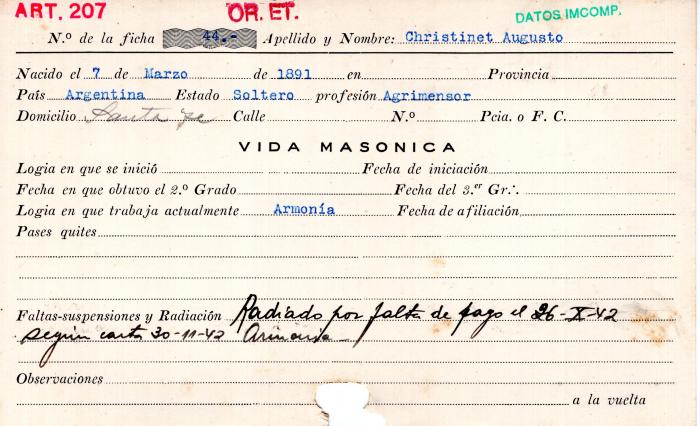 ART. 207 OR. ET. DATOS IMCOMP.
N.º de la ficha 44.- Apellido y Nombre: Christinet Augusto
Nacido el 7 de Marzo de 1891 en Provincia
País Argentina Estado Soltero profesión Agrimensor
Domicilio Santa Fe Calle N.º Pcia. o F. C.
VIDA MASONICA
Logia en que se inició Fecha de iniciación
Fecha en que obtuvo el 2.º Grado Fecha del 3.er Gr∴
Logia en que trabaja actualmente Armonía Fecha de afiliación
Pases quites
Faltas-suspensiones y Radiación Radiado por falta de pago el 26-X-42
según carta 30-11-42 Armonía
Observaciones
a la vuelta